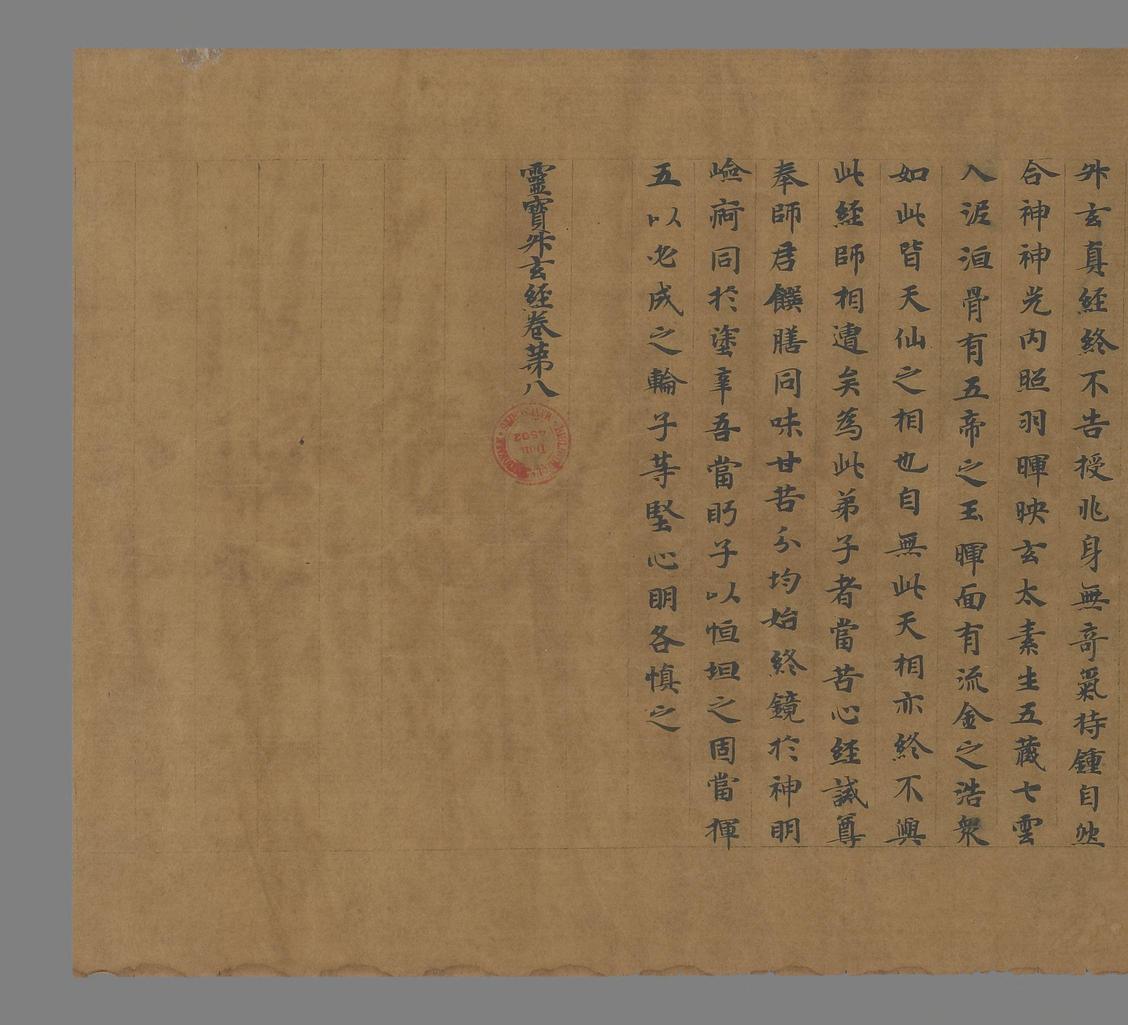 舛玄真經終不告授兆身無奇氣待鍾自然
合神神光内照羽暉映玄太素生五藏七雲
入泥洹骨有五帝之玉暉面有流金之浩衆
如此皆天仙之相也自無此天相亦終不與
此經師相遭矣為此弟子者當苦心經誡尊
奉師君饌膳同味甘苦分均始終鏡於神明
嶮同於塗辛吾當眄子以恒坦之固當揮
五以必成之輪子等堅心明各慎之
靈寶舛玄經卷第八